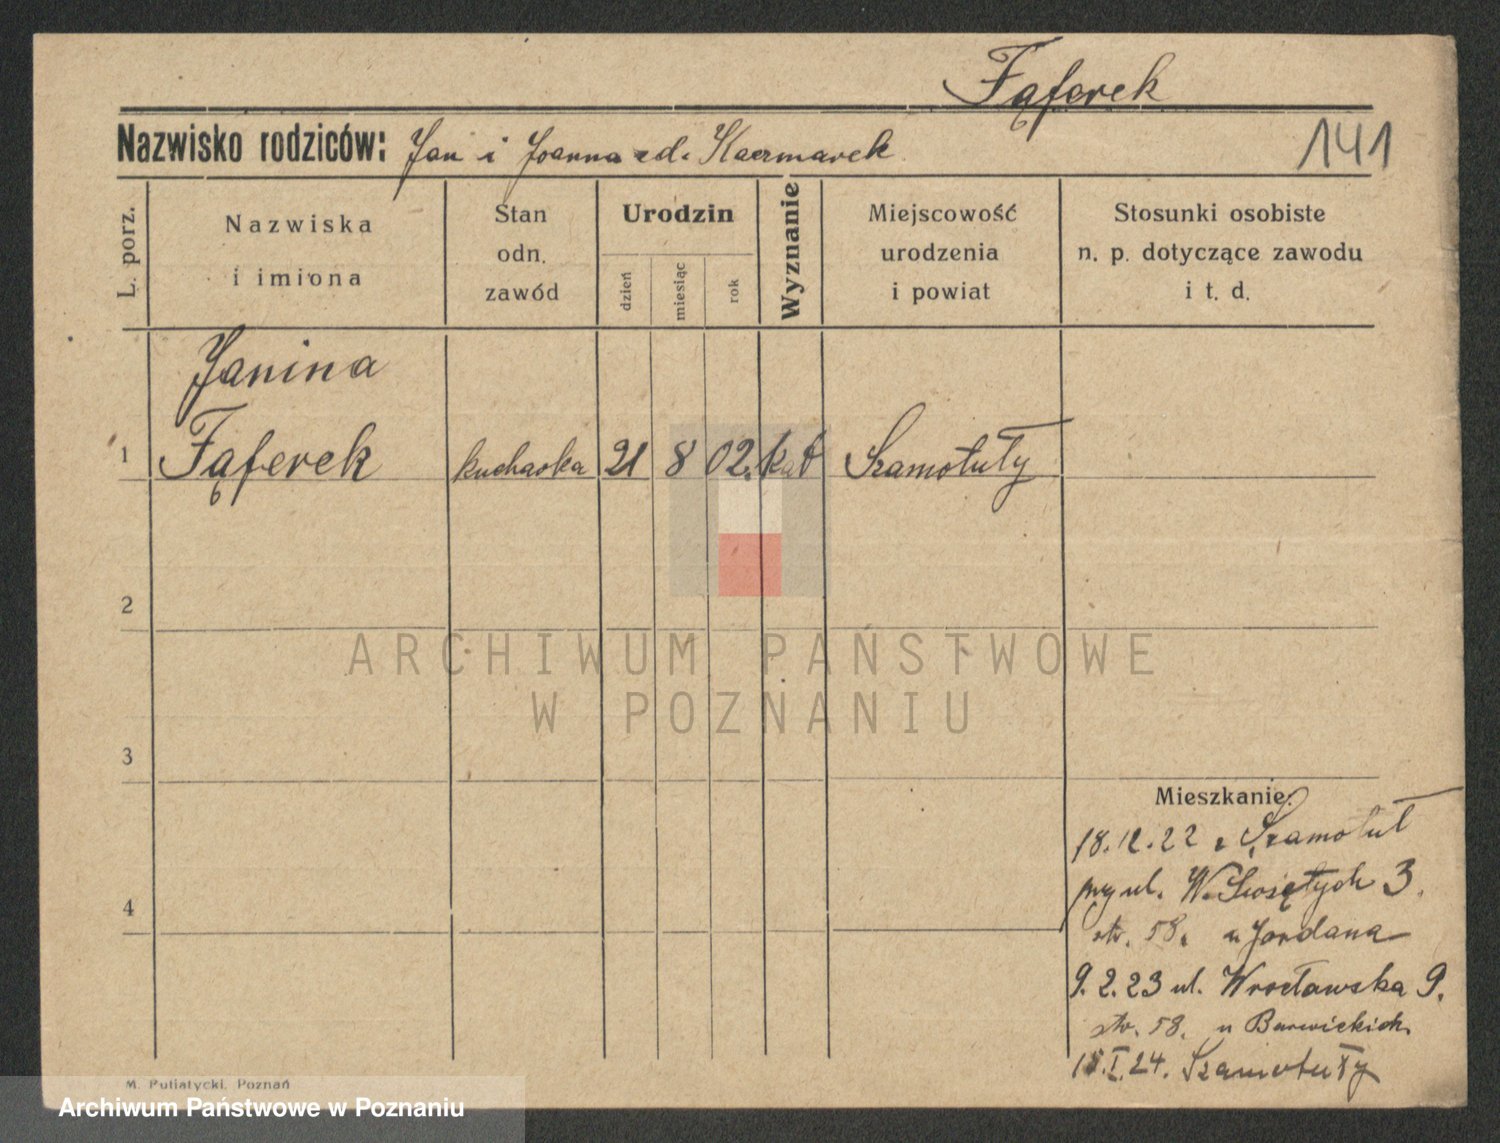 Fąferek
Nazwisko rodziców: Jan i Joanna zd. Kaczmarek
141
L. porz.
Nazwiska
i imiona
Stan
odn.
zawód
Urodzin
dzień
miesiąc
rok
Wyznanie
Miejscowość
urodzenia
i powiat
Stosunki osobiste
n. p. dotyczące zawodu
i t. d.
Janina
1 Fąferek kucharka 21 8 02. kat Szamotuły
2
ARCHIWUM PAŃSTWOWE
W POZNANIU
3
Mieszkanie:
18.12.22 z Szamotuł
przy ul. W. Świętych 3.
str. 58. u Jordana
4
9.2.23 ul. Wrocławska 9.
str. 58. u Barwickich
18.I.24. Szamotuły
M. Putiatycki, Poznań
Archiwum Państwowe w Poznaniu